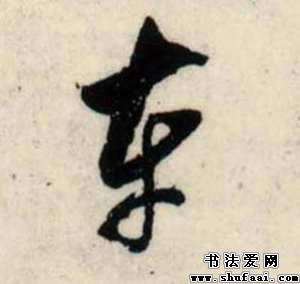 车
书法爱网
www.shufaai.com